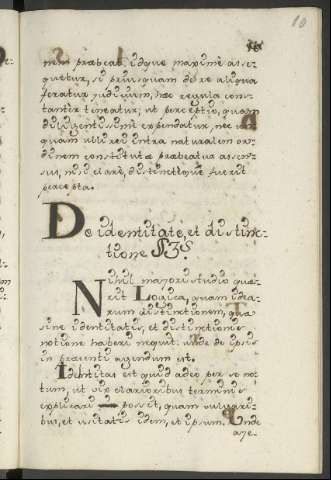 10
nem præbeat idque maximè asse-
quetur, si priusquam de re aliqua
feratur judicium, hæc regula cons-
tanter teneatur; ut perceptio, quam
diligentissimè expendatur, nec un-
quam ulli rei intra naturalem or-
dinem constitutæ præbeatur assen-
sui, nisi clarè, distinctèque fuerit
percepta.
De identitate, et distinc-
tione §3.
Nihil majori studio quæ-
rit Logica, quam idea-
rum distinctionem, quæ
sine identitatis, et distinctionis
notione haberi nequit: unde de ipsis
in præsenti agendum est.
Identitas est quid adeo per se no-
tum, ut vix clarioribus terminis
explicari possit, quam vulgari-
bus, et usitatis idem, et ipsum. Unde